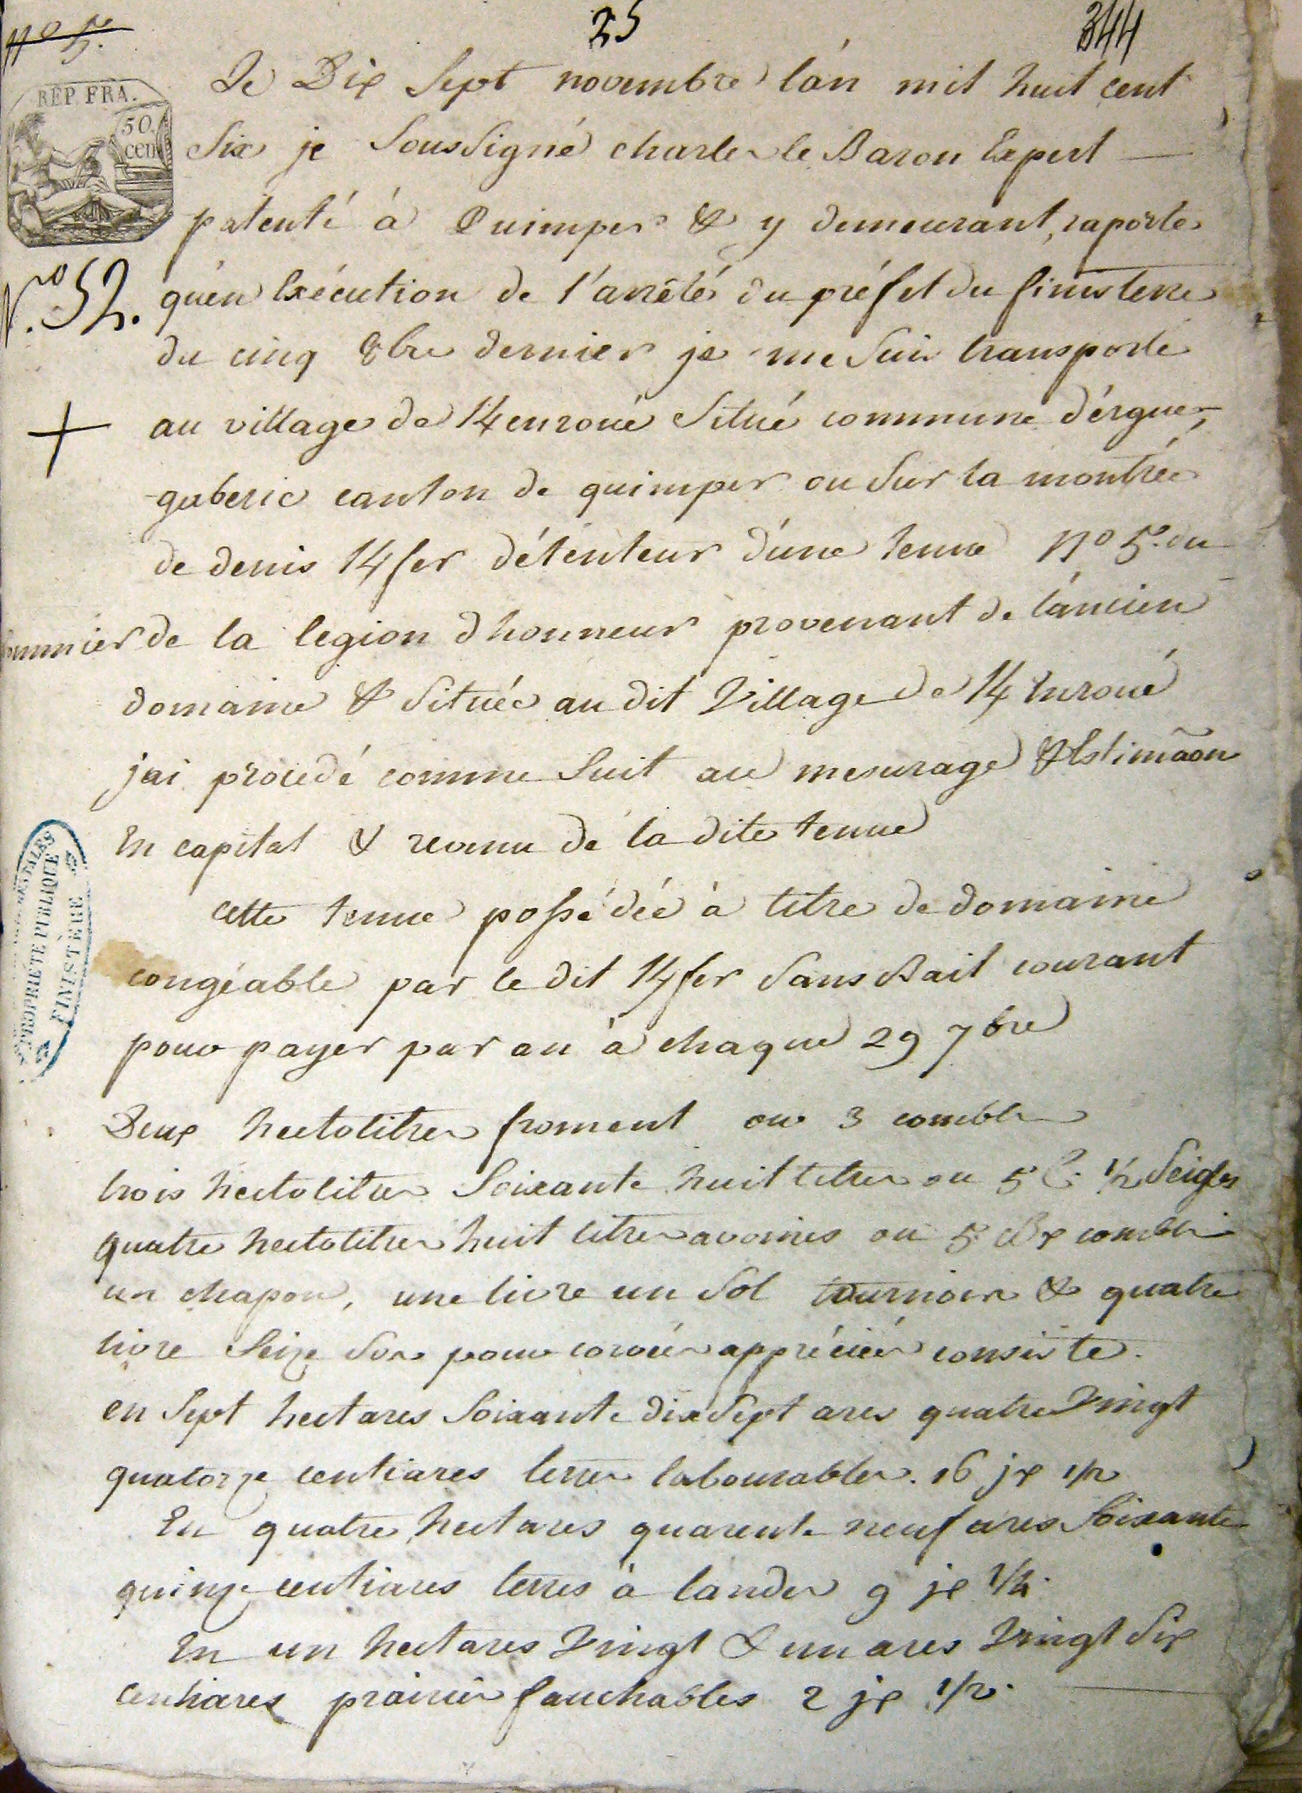 nº 5.
25
344
RÉP. FRA.
50 cen
Le Dix Sept novembre l'an mil huit cent
Six je Soussigné charles le Baron Expert
patenté à Quimper & y demeurant, raporte
qu'en Exécution de l'arrêté du préfet du finisterre
Nº 52.
du cinq 8bre dernier je me Suis transporté
au village de K enroué Situé commune d'érgue-
gaberic canton de quimper ou Sur la montrée
de denis K fer détenteur d'une tenue nº 5. du
sommier de la legion d honneur provenant de l'ancien
domaine & Située au dit Village de K Enroué
jai procédé comme Suit au mesurage & Estimãon
En capital & revenu de la dite tenue
cette tenue possédée à titre de domaine
congéable par le dit K fer Sans Bail courant
pour payer par an à chaque 29 7bre
Deux hectolitres froment ou 3 combles
trois hectolitres Soixante huit litres ou 5 C. 1/2 Seigles
quatre hectolitres huit litres avoines ou 5 combles
un chapon, une livre un Sol tournois & quatre
livre Seize Sos pour corvées appréciées consiste.
en Sept hectares Soixante dix Sept ares quatre Vingt
quatorze centiares terres labourables. 16 jx 1/2
En quatre hectares quarente neuf ares Soixante
quinze centiares terres à landes 9 jx 1/4.
En un hectares Vingt & un ares Vingt Six
centiares prairies fauchables 2 jx 1/2.
PROPRIÉTÉ PUBLIQUE
FINISTÈRE